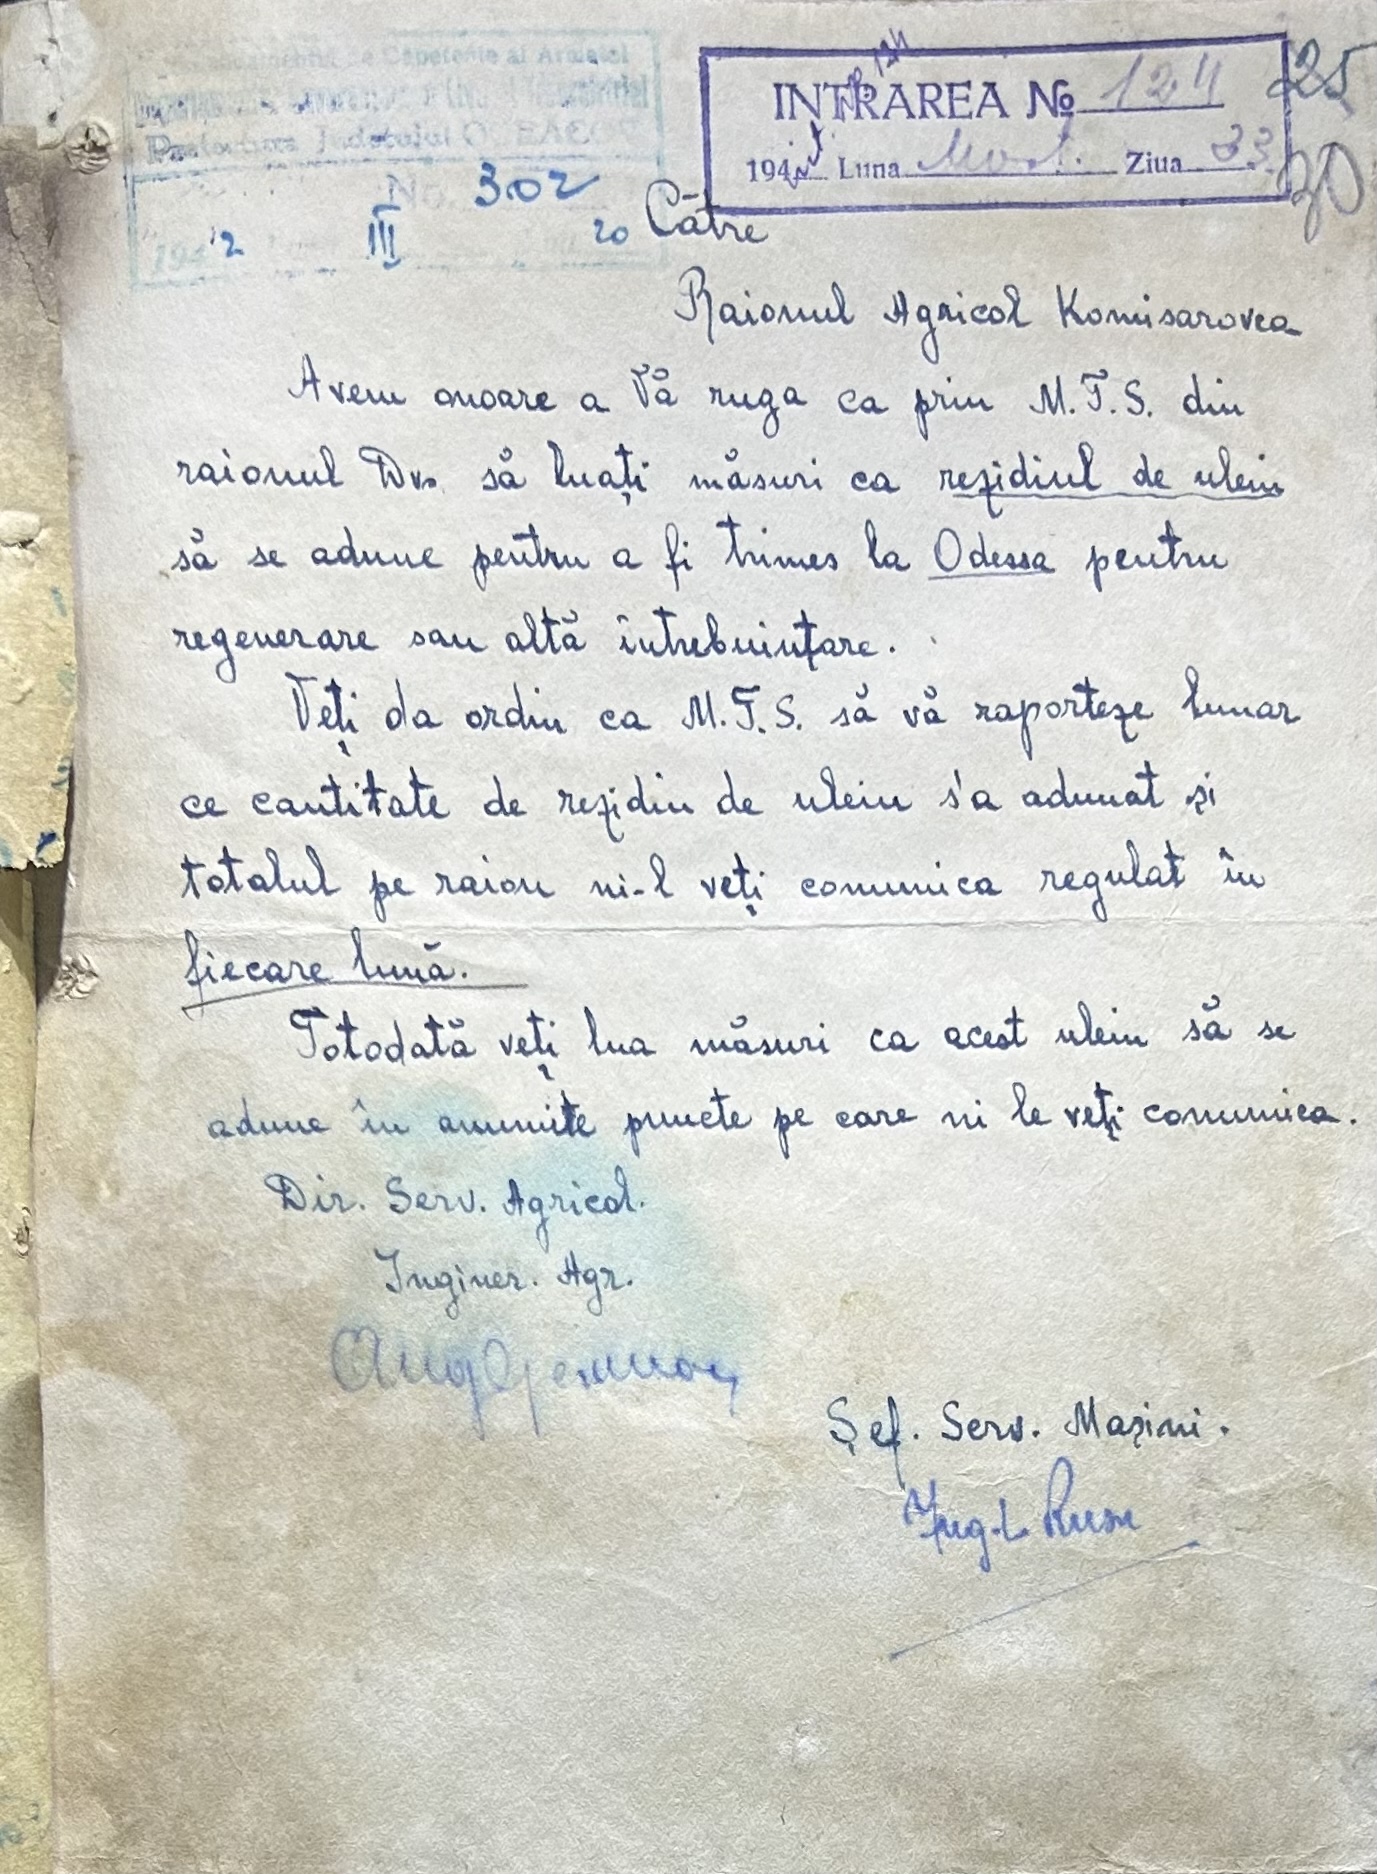 Pretura Judetului
No. 302
1942 III 20
INTRAREA No 124
194 Luna Mart. Ziua 23
25
30
Către
Raionul Agricol Komisarovca
Avem onoare a Vă ruga ca prin M.T.S. din
raionul Dv. să luați măsuri ca rezidiul de uleiu
să se adune pentru a fi trimes la Odessa pentru
regenerare sau altă întrebuințare.
Veți da ordin ca M.T.S. să vă raporteze lunar
ce cantitate de rezidiu de uleiu s'a adunat și
totalul pe raion ni-l veți comunica regulat în
fiecare lună.
Totodată veți lua măsuri ca acest uleiu să se
adune în anumite puncte pe care ni le veți comunica.
Dir. Serv. Agricol.
Inginer. Agr.
Șef. Serv. Mașini.
Ing. L Rusu